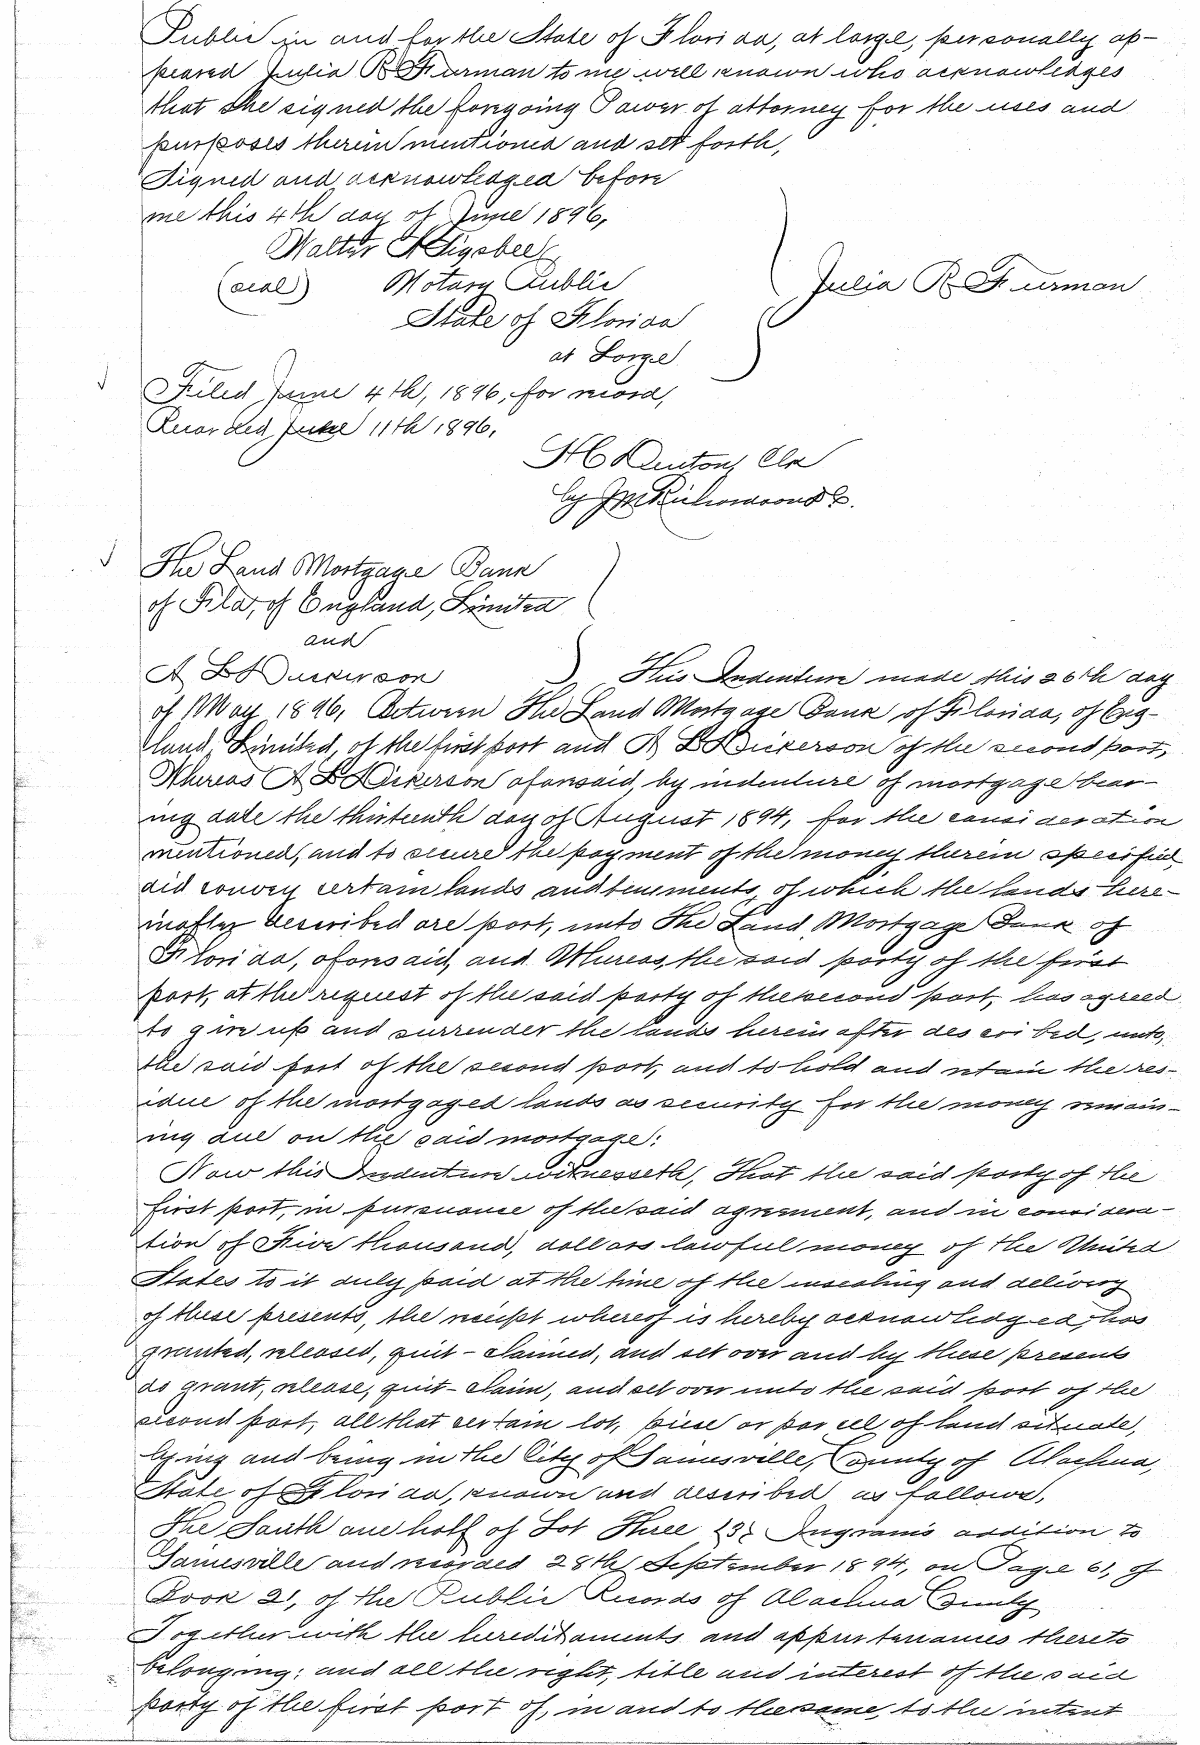 Public in and for the State of Florida, at large, personally ap-
peared Julia R Furman to me well known who acknowledges
that she signed the foregoing Power of attorney for the uses and
purposes therein mentioned and set forth,
Signed and acknowledged before
me this 4th day of June 1896,
Walter
(seal) Notary Public
Julia R Furman
State of Florida
at Large
Filed June 4th, 1896, for record,
Recorded June 11th 1896,
H C Denton, Clk
by J M Richardson D C.
The Land Mortgage Bank
of Fla, of England, Limited
and
A L Dickerson
This Indenture made this 26th day
of May 1896, Between The Land Mortgage Bank of Florida, of Eng-
land, Limited, of the first part and A L Dickerson of the second part,
Whereas A L Dickerson aforesaid, by indenture of mortgage bear-
ing date the thirteenth day of August 1894, for the consideration
mentioned, and to secure the payment of the money therein specified,
did convey certain lands and tenements, of which the lands here-
inafter described are part, unto The Land Mortgage Bank of
Florida, aforesaid, and Whereas, the said party of the first
part, at the request of the said party of the second part, has agreed
to give up and surrender the lands herein after described, unto,
the said part of the second part, and to hold and retain the res-
idue of the mortgaged lands as security for the money remain-
ing due on the said mortgage:
Now this Indenture witnesseth, That the said party of the
first part, in pursuance of the said agreement, and in considera-
tion of Five thousand, dollars lawful money of the United
States to it duly paid at the time of the ensealing and delivery
of these presents, the receipt whereof is hereby acknowledged, has
granted, released, quit-claimed, and set over and by these presents
do grant, release, quit-claim, and set over unto the said part of the
second part, all that certain lot, piece or parcel of land situate,
lying and being in the City of Gainesville, County of Alachua,
State of Florida, known and described as follows,
The South one half of Lot Three (3) Ingram's addition to
Gainesville and recorded 28th September 1894, on Page 61, of
Book 2, of the Public Records of Alachua County
Together with the hereditaments and appurtenances thereto
belonging; and all the right, title and interest of the said
party of the first part of, in and to the same, to the intent